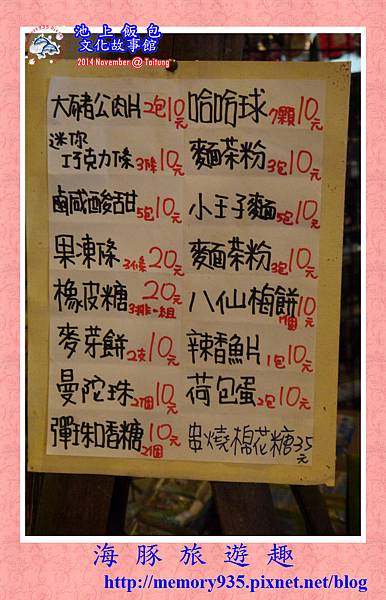 池上飯包
文化故事館
2014 November @ Taitung
大豬公肉片 2包10元
哈哈球 7顆10元
迷你巧克力條 3條10元
麵茶粉 3包10元
鹹酸甜 5包10元
小王子麵 5包10元
果凍條 3條20元
麵茶粉 3包10元
橡皮糖 20元 3排一組
八仙梅餅 10元 1個
麥芽餅 2支10元
辣香魚片 1包10元
曼陀珠 2個10元
荷包蛋 2包10元
彈珠口香糖 10元 2個
串燒棉花糖 35元
海豚旅遊趣
http://memory935.pixnet.net/blog